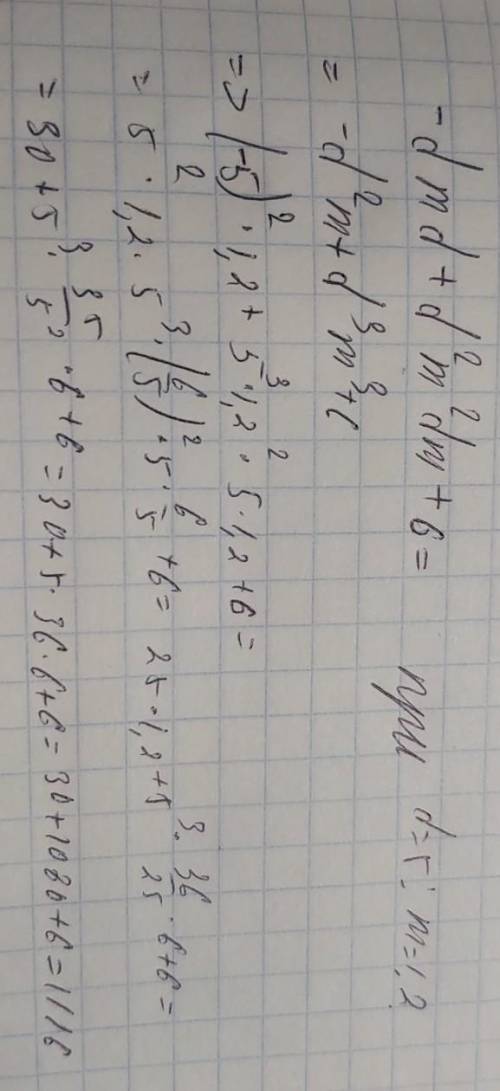 -dmd + d²m²dm + 6 = при d=5: m=1,2
= -d²m + d³m³ + 6
=> (-5)² · 1,2 + 5³ · 1,2² · 5 · 1,2 + 6 =
= 5² · 1,2 · 5³ · (6/5)² · 5 · 6/5 + 6 = 25 · 1,2 + 5³ · 36/25 · 6 + 6 =
= 30 + 5³ · 35/5² · 6 + 6 = 30 + 5 · 36 · 6 + 6 = 30 + 1080 + 6 = 1116